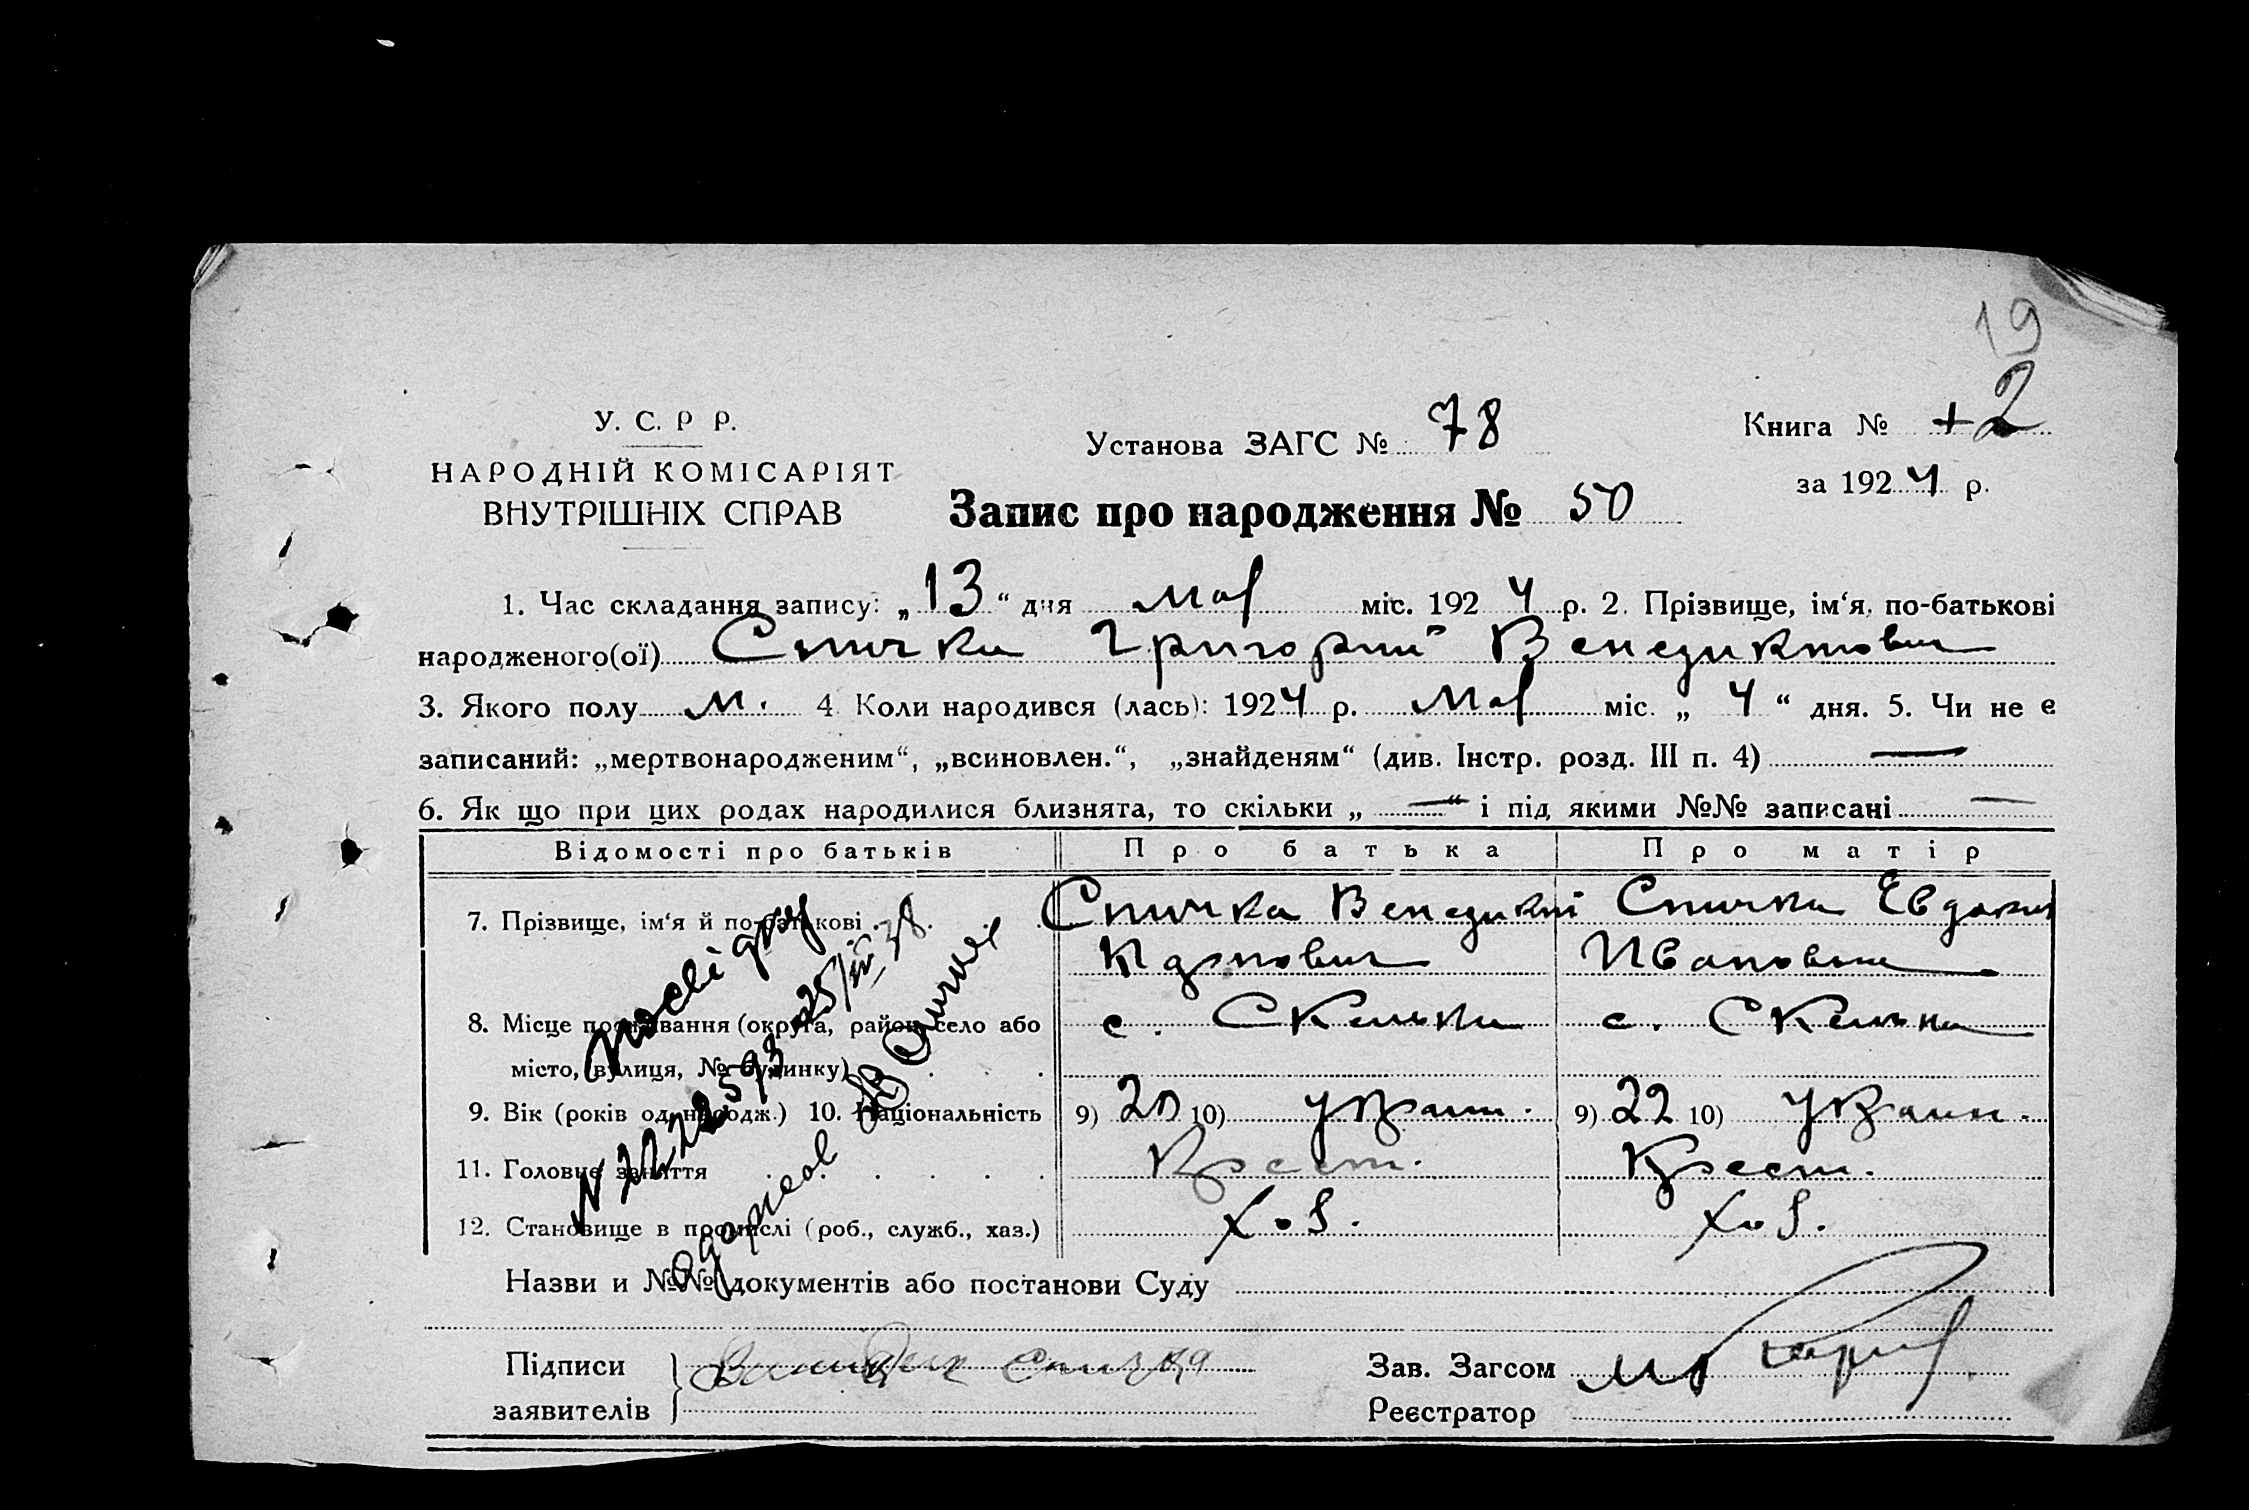 19
У. С. Р Р.
НАРОДНІЙ КОМІСАРІЯТ
ВНУТРІШНІХ СПРАВ
Установа ЗАГС № 78
Книга № 2
за 1924 р.
Запис про народження № 50
1. Час складання запису: „13“ дня мая міс. 1924 р. 2. Прізвище, ім‘я, по-батькові
народженого(ої) Спичка Григорий Венедиктович
3. Якого полу м. 4 Коли народився (лась): 1924 р. мая міс. „4“ дня. 5. Чи не є
записаний: „мертвонародженим“, „всиновлен.“, „знайденям“ (див. Інстр. розд. III п. 4) —
6. Як що при цих родах народилися близнята, то скільки „—“ і під якими №№ записані —
Відомості про батьків Про батька Про матір
7. Прізвище, ім‘я й по-батькові Спичка Венедикт Спичка Евдокия
Ивановна
8. Місце проживання (округа, район, село або с. Скельки с. Скельки
місто, вулиця, № будинку)
9. Вік (років од народж.) 10. Національність 9) 20 10) украин. 9) 22 10) украин.
11. Головне заняття Крест. Крест.
12. Становище в промислі (роб., служб., хаз.) Хоз. Хоз.
Назви и №№ документів або постанови Суду
Підписи
заявителів
Спичка
Зав. Загсом
Реєстратор